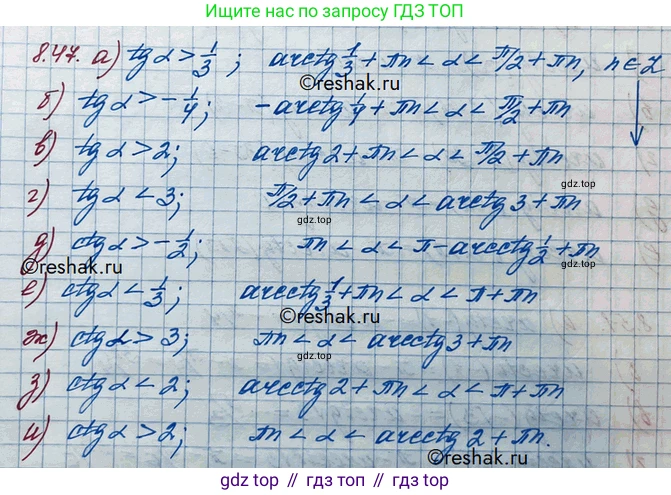 Ищите нас по запросу ГДЗ ТОП
8.47. а) tg α > 1/3 ; arctg 1/3 + πn < α < π/2 + πn, n ∈ Z
б) tg α > -1/4; -arctg 1/4 + πn < α < π/2 + πn
в) tg α > 2; arctg 2 + πn < α < π/2 + πn
gdz.top
г) tg α < 3; π/2 + πn < α < arctg 3 + πn
gdz.top
д) ctg α > -1/2; πn < α < π - arcctg 1/2 + πn
©reshak.ru
gdz.top
е) ctg α < 1/3; arcctg 1/3 + πn < α < π + πn
©reshak.ru
ж) ctg α > 3; πn < α < arcctg 3 + πn
з) ctg α < 2; arcctg 2 + πn < α < π + πn
и) ctg α > 2; πn < α < arcctg 2 + πn.
©reshak.ru
gdz top // гдз топ // gdz.top